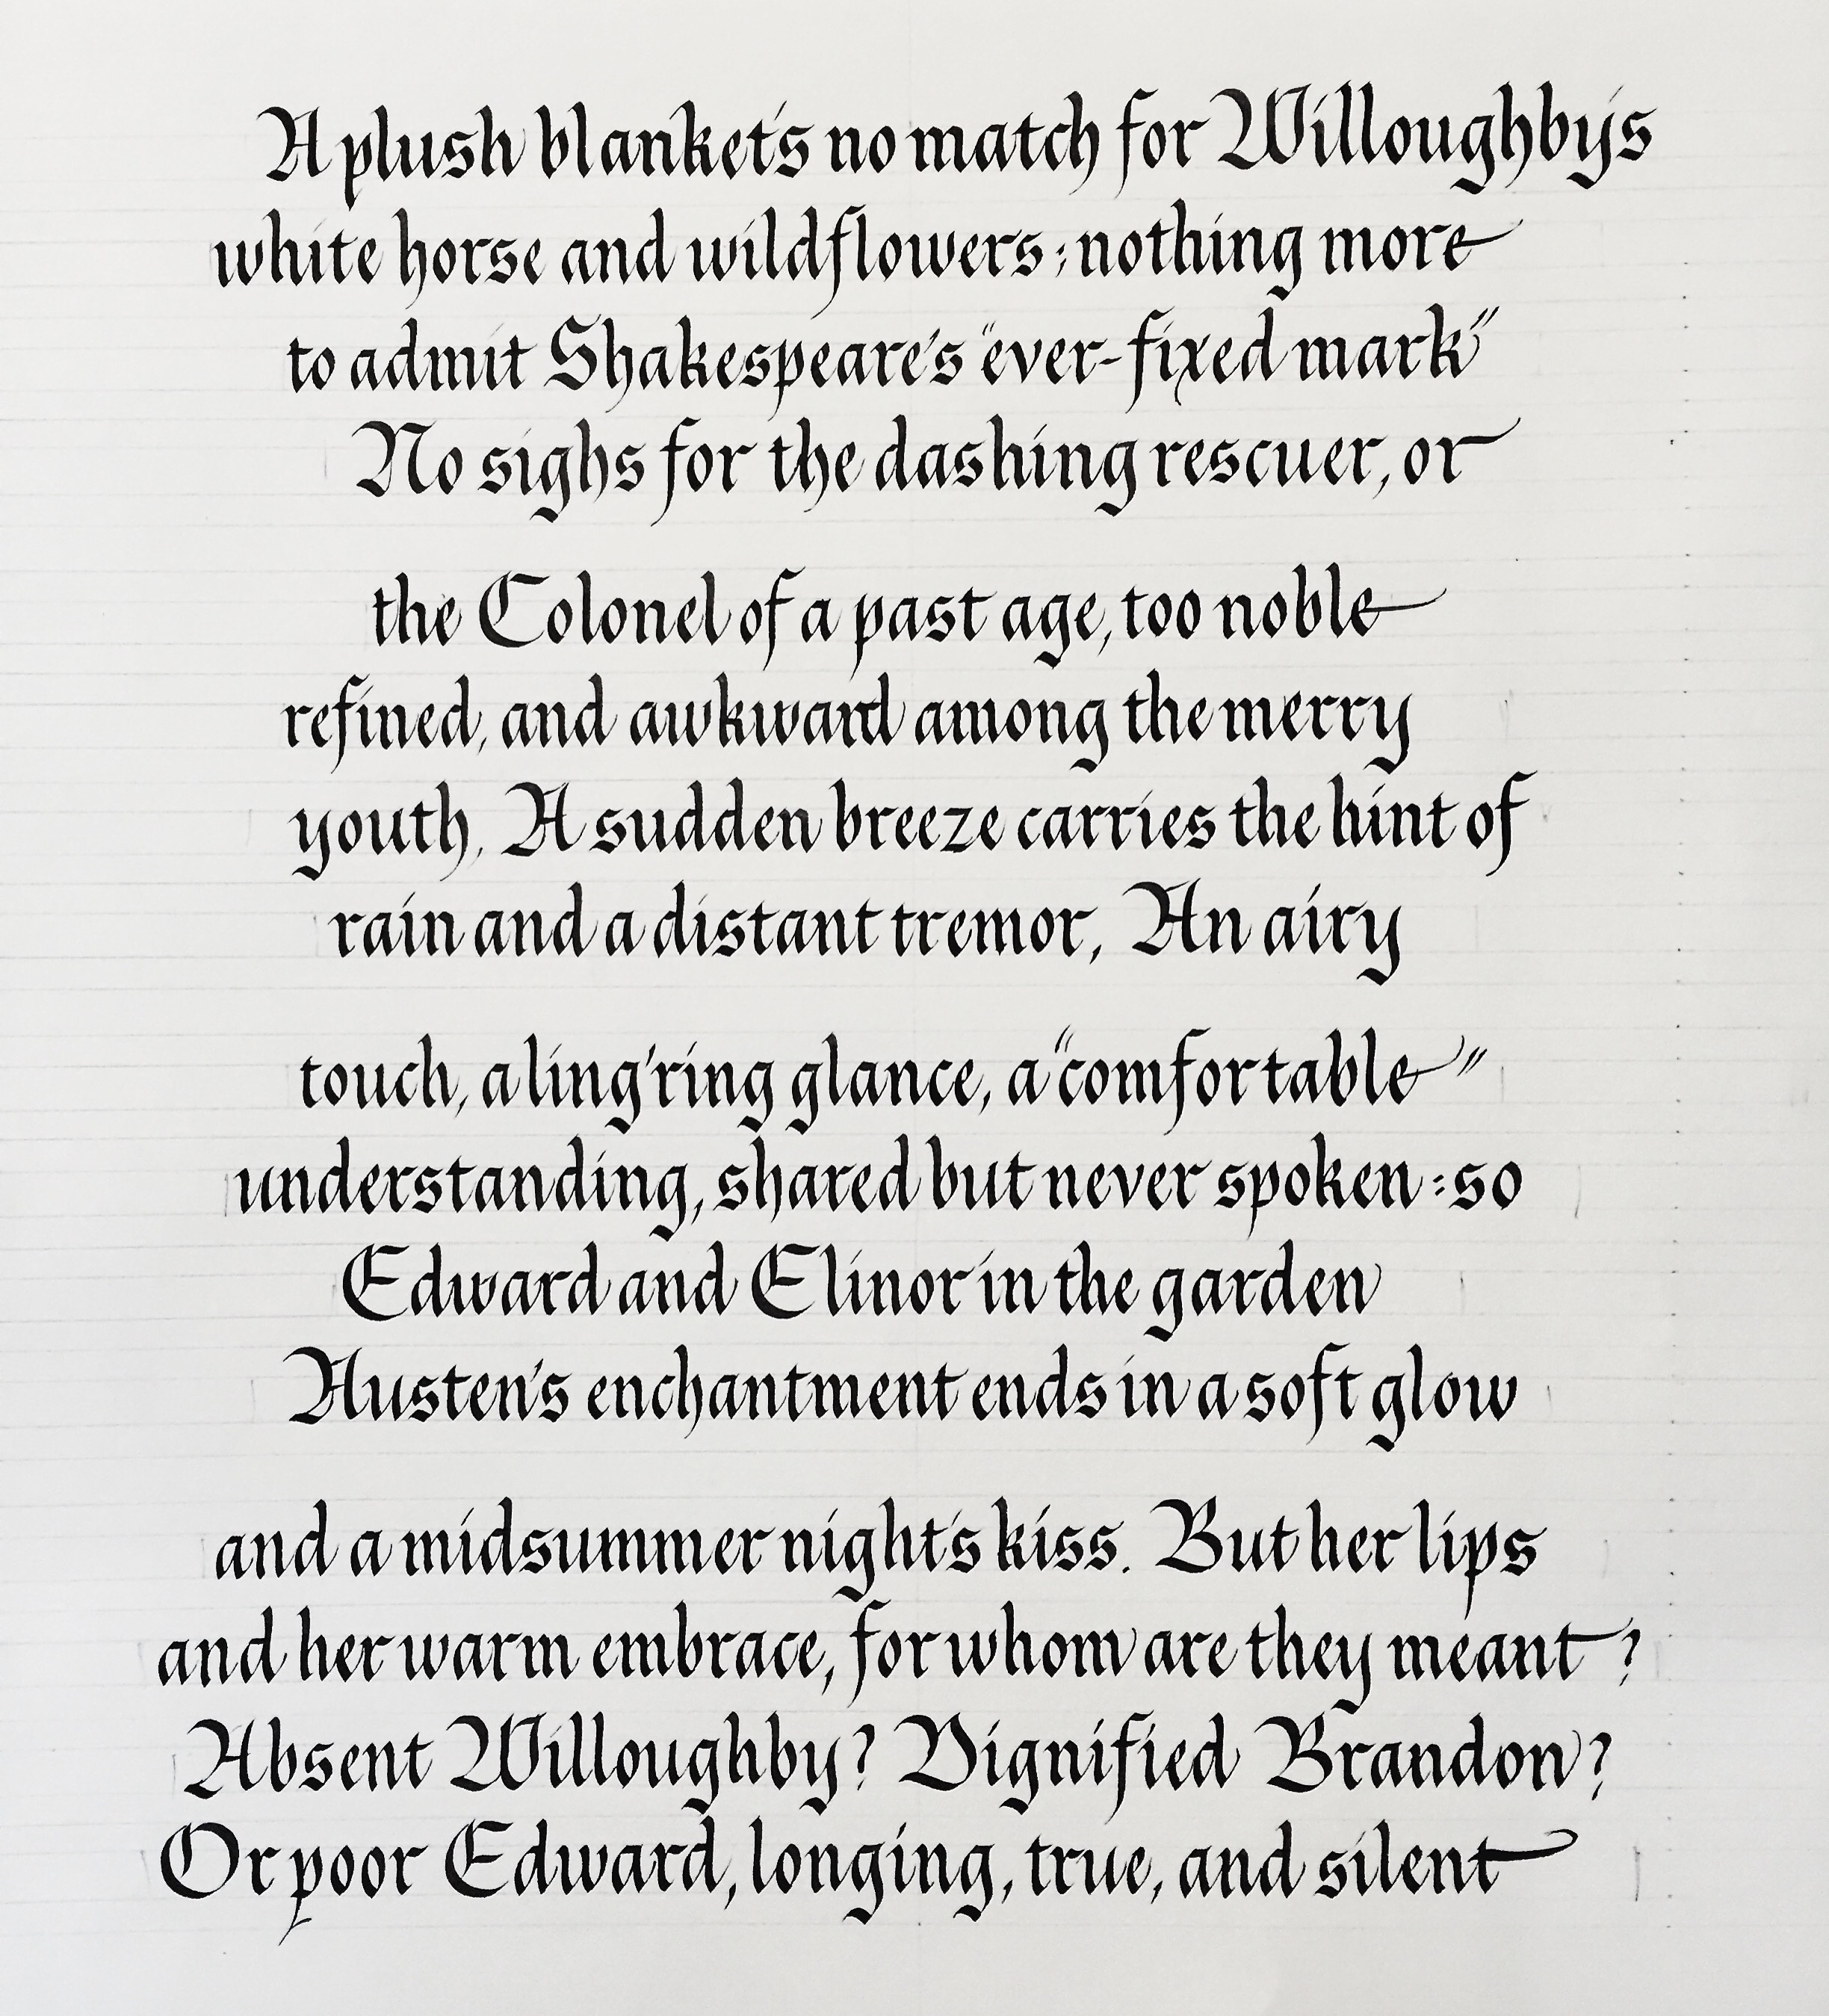 A plush blanket's no match for Willoughby's
white horse and wildflowers: nothing more
to admit Shakespeare's "ever-fixed mark"
No sighs for the dashing rescuer, or
the Colonel of a past age, too noble
refined, and awkward among the merry
youth. A sudden breeze carries the hint of
rain and a distant tremor, An airy
touch, a ling'ring glance, a "comfortable"
understanding, shared but never spoken: so
Edward and Elinor in the garden
Austen's enchantment ends in a soft glow
and a midsummer night's kiss. But her lips
and her warm embrace, for whom are they meant?
Absent Willoughby? Dignified Brandon?
Or poor Edward, longing, true, and silent